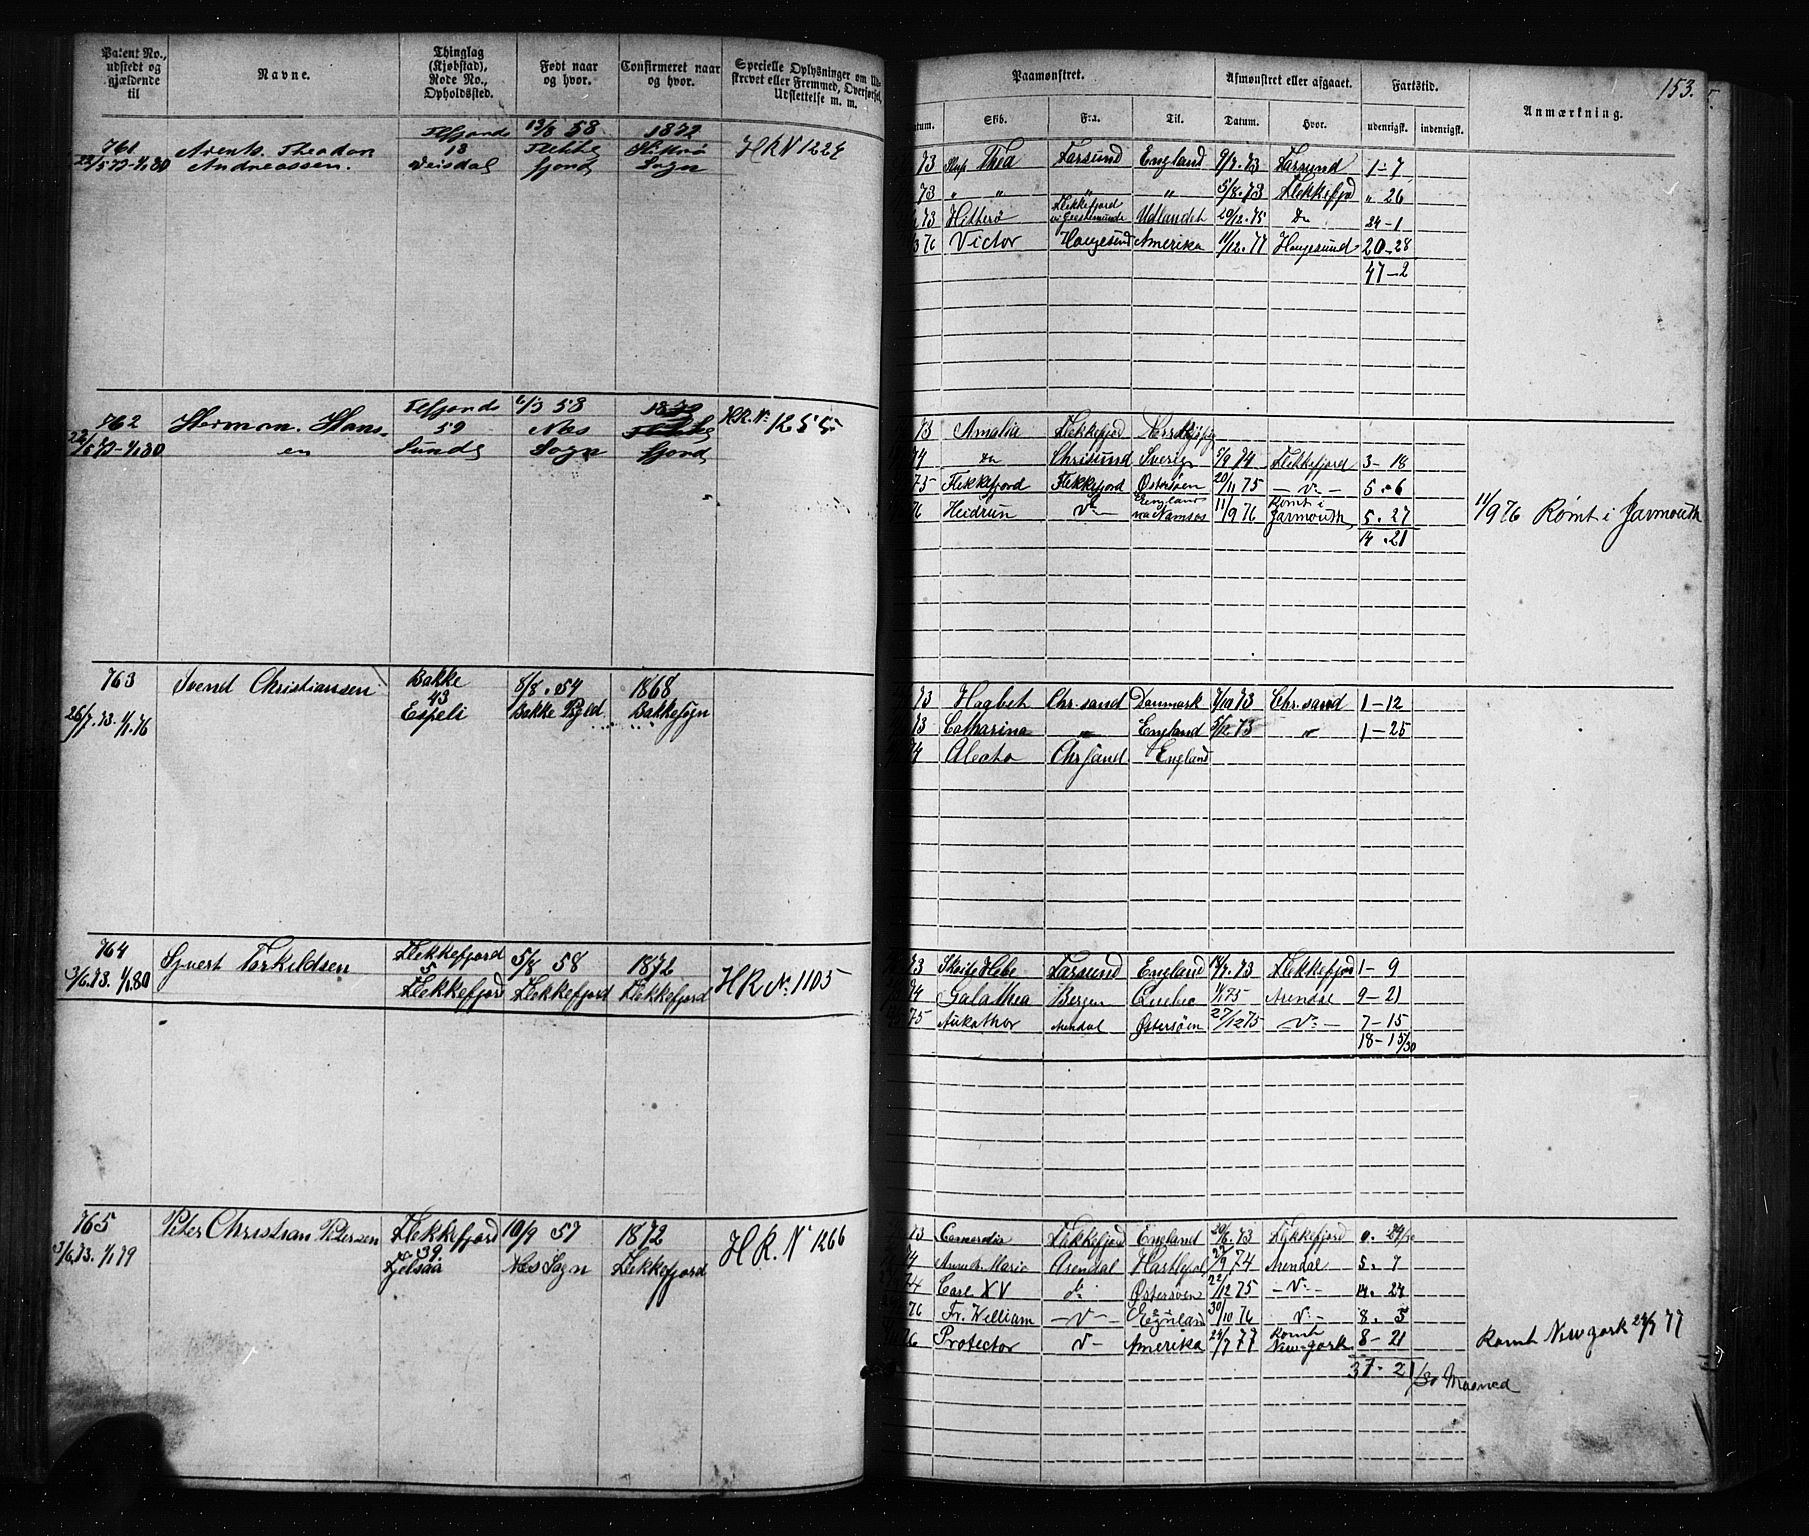 153.
Patent No., udstedt og gjældende til
Navne.
Thinglag (Kjøbstad), Rode No., Opholdssted.
Født naar og hvor.
Confirmeret naar og hvor.
Specielle Oplysninger om Ud-
skrevet eller Fremmed, Overførsel,
Udslettelse m. m.
Paamønstret.
Afmønstret eller afgaaet.
Fartstid.
Anmærkning.
Datum. Skib. Fra. Til. Datum. Hvor. udenrigsk. indenrigsk.
761 13/8 58 1872 H R N 1224
Theodor
Andreassen. 13
Sogn
73 Slup Thea Farsund England 9/7.73 Farsund 1-7
73 " " " " 5/8.73 Flekkefjd " 26
73 Hetterø Flekkefjord Udlandet 20/12.75 do 24-1
76 Victor Haugesund Amerika 11/12.77 Haugesund 20-28
47-2
762 Herman Hans-
en 59 6/3 58 Næs Sogn
fjord H.R. No 1255
73 Amalia Flekkefjord
74 do Chrisund Sverig 5/9 74 Flekkefjord 3-18
75 Flekkefjord Flekkefjord Østersøen 20/11 75 -do- 5.6
76 Heidrun do England via Namsos 11/9 76 Rømt i Jarmouth 5.27
14.21
11/9 76 Rømt i Jarmouth
763 Svend Christiansen Bakke 8/8.54 1868
43
26/7.73. 1/1.76 Espeli Bakke Pgld Bakkesogn
73 Hagbet Chr.sand Danmark 7/10 73 Chr.sand 1-12
73 Catharina " England 5/12 73 " 1-25
74 Alecto Chrsand England
764 Syvert Torkildsen Flekkefjord 5/8 58 1872 H R No. 1105
5
3/6.73. 1/1.80 Flekkefjord Flekkefjord Flekkefjord
73 Skøite Hebe Farsund England 18/7.73 Flekkefjord 1-9
74 Galathea Bergen Quebec Arendal 9-21
75 Aukathor Arendal Østersøen 27/12 75 do 7-15
18-15/30
765 Peter Christian Petersen Flekkefjord 10/9 57 1872 H R. N 1266
39
3/6.73. 1/1 79 Næs Sogn Flekkefjord
73 Flekkefjord England 20/6.73 Flekkefjord 0.
74 Maria Arendal 74 Arendal 5.7
74 Carl XV do Østersøen 22/12 75 do 14.24
76 Fr. William do England 30/10 76 do 8.5
76 Protector do Amerika 24/7 77 Rømt New-York 8-21
Rømt New york 24/7 77
37-21/30 Maaned